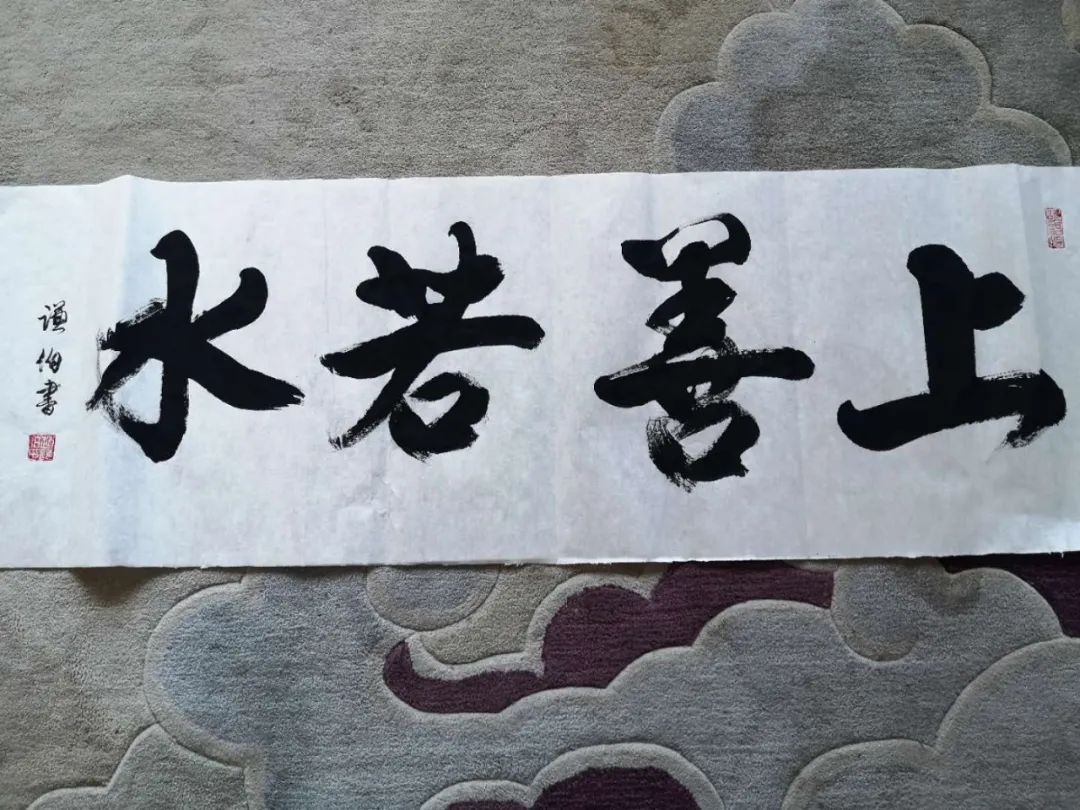 上善若水
谦伯書